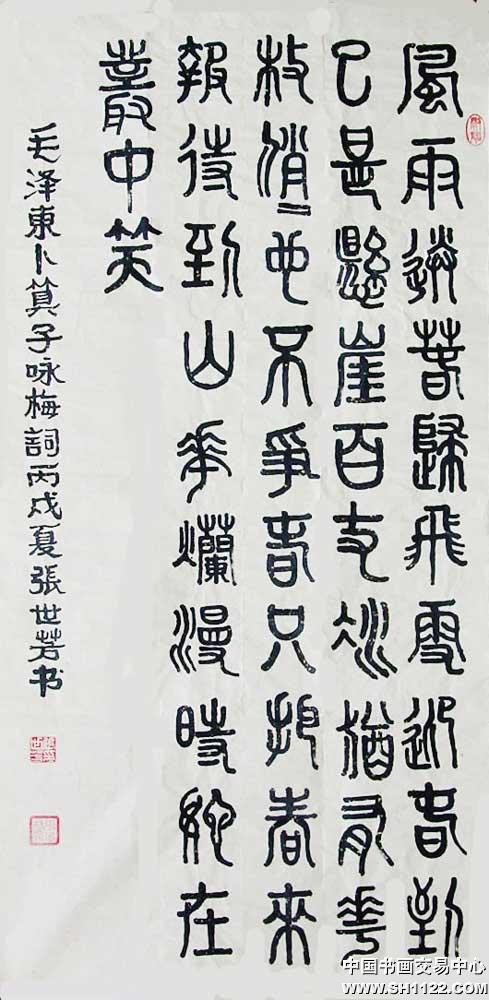 風雨送春歸飛雪迎春到
已是懸崖百丈冰猶有花
枝俏〻也不爭春只把春來
報待到山花爛漫時她在
叢中笑
毛泽東卜算子咏梅詞丙戌夏張世芳书
中国书画交易中心
www.SH1122.com